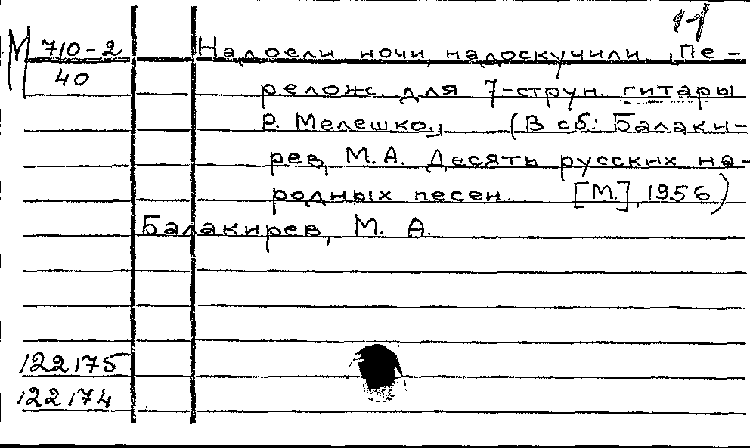 М 710-2 Надоели ночи, надоскучили. Пе-
40 релож. для 7-струн. гитары
Р. Мелешко., (В сб: Балаки-
рев, М.А. Десять русских на-
родных песен. [М.], 1956)
Балакирев, М. А.
122175
122174